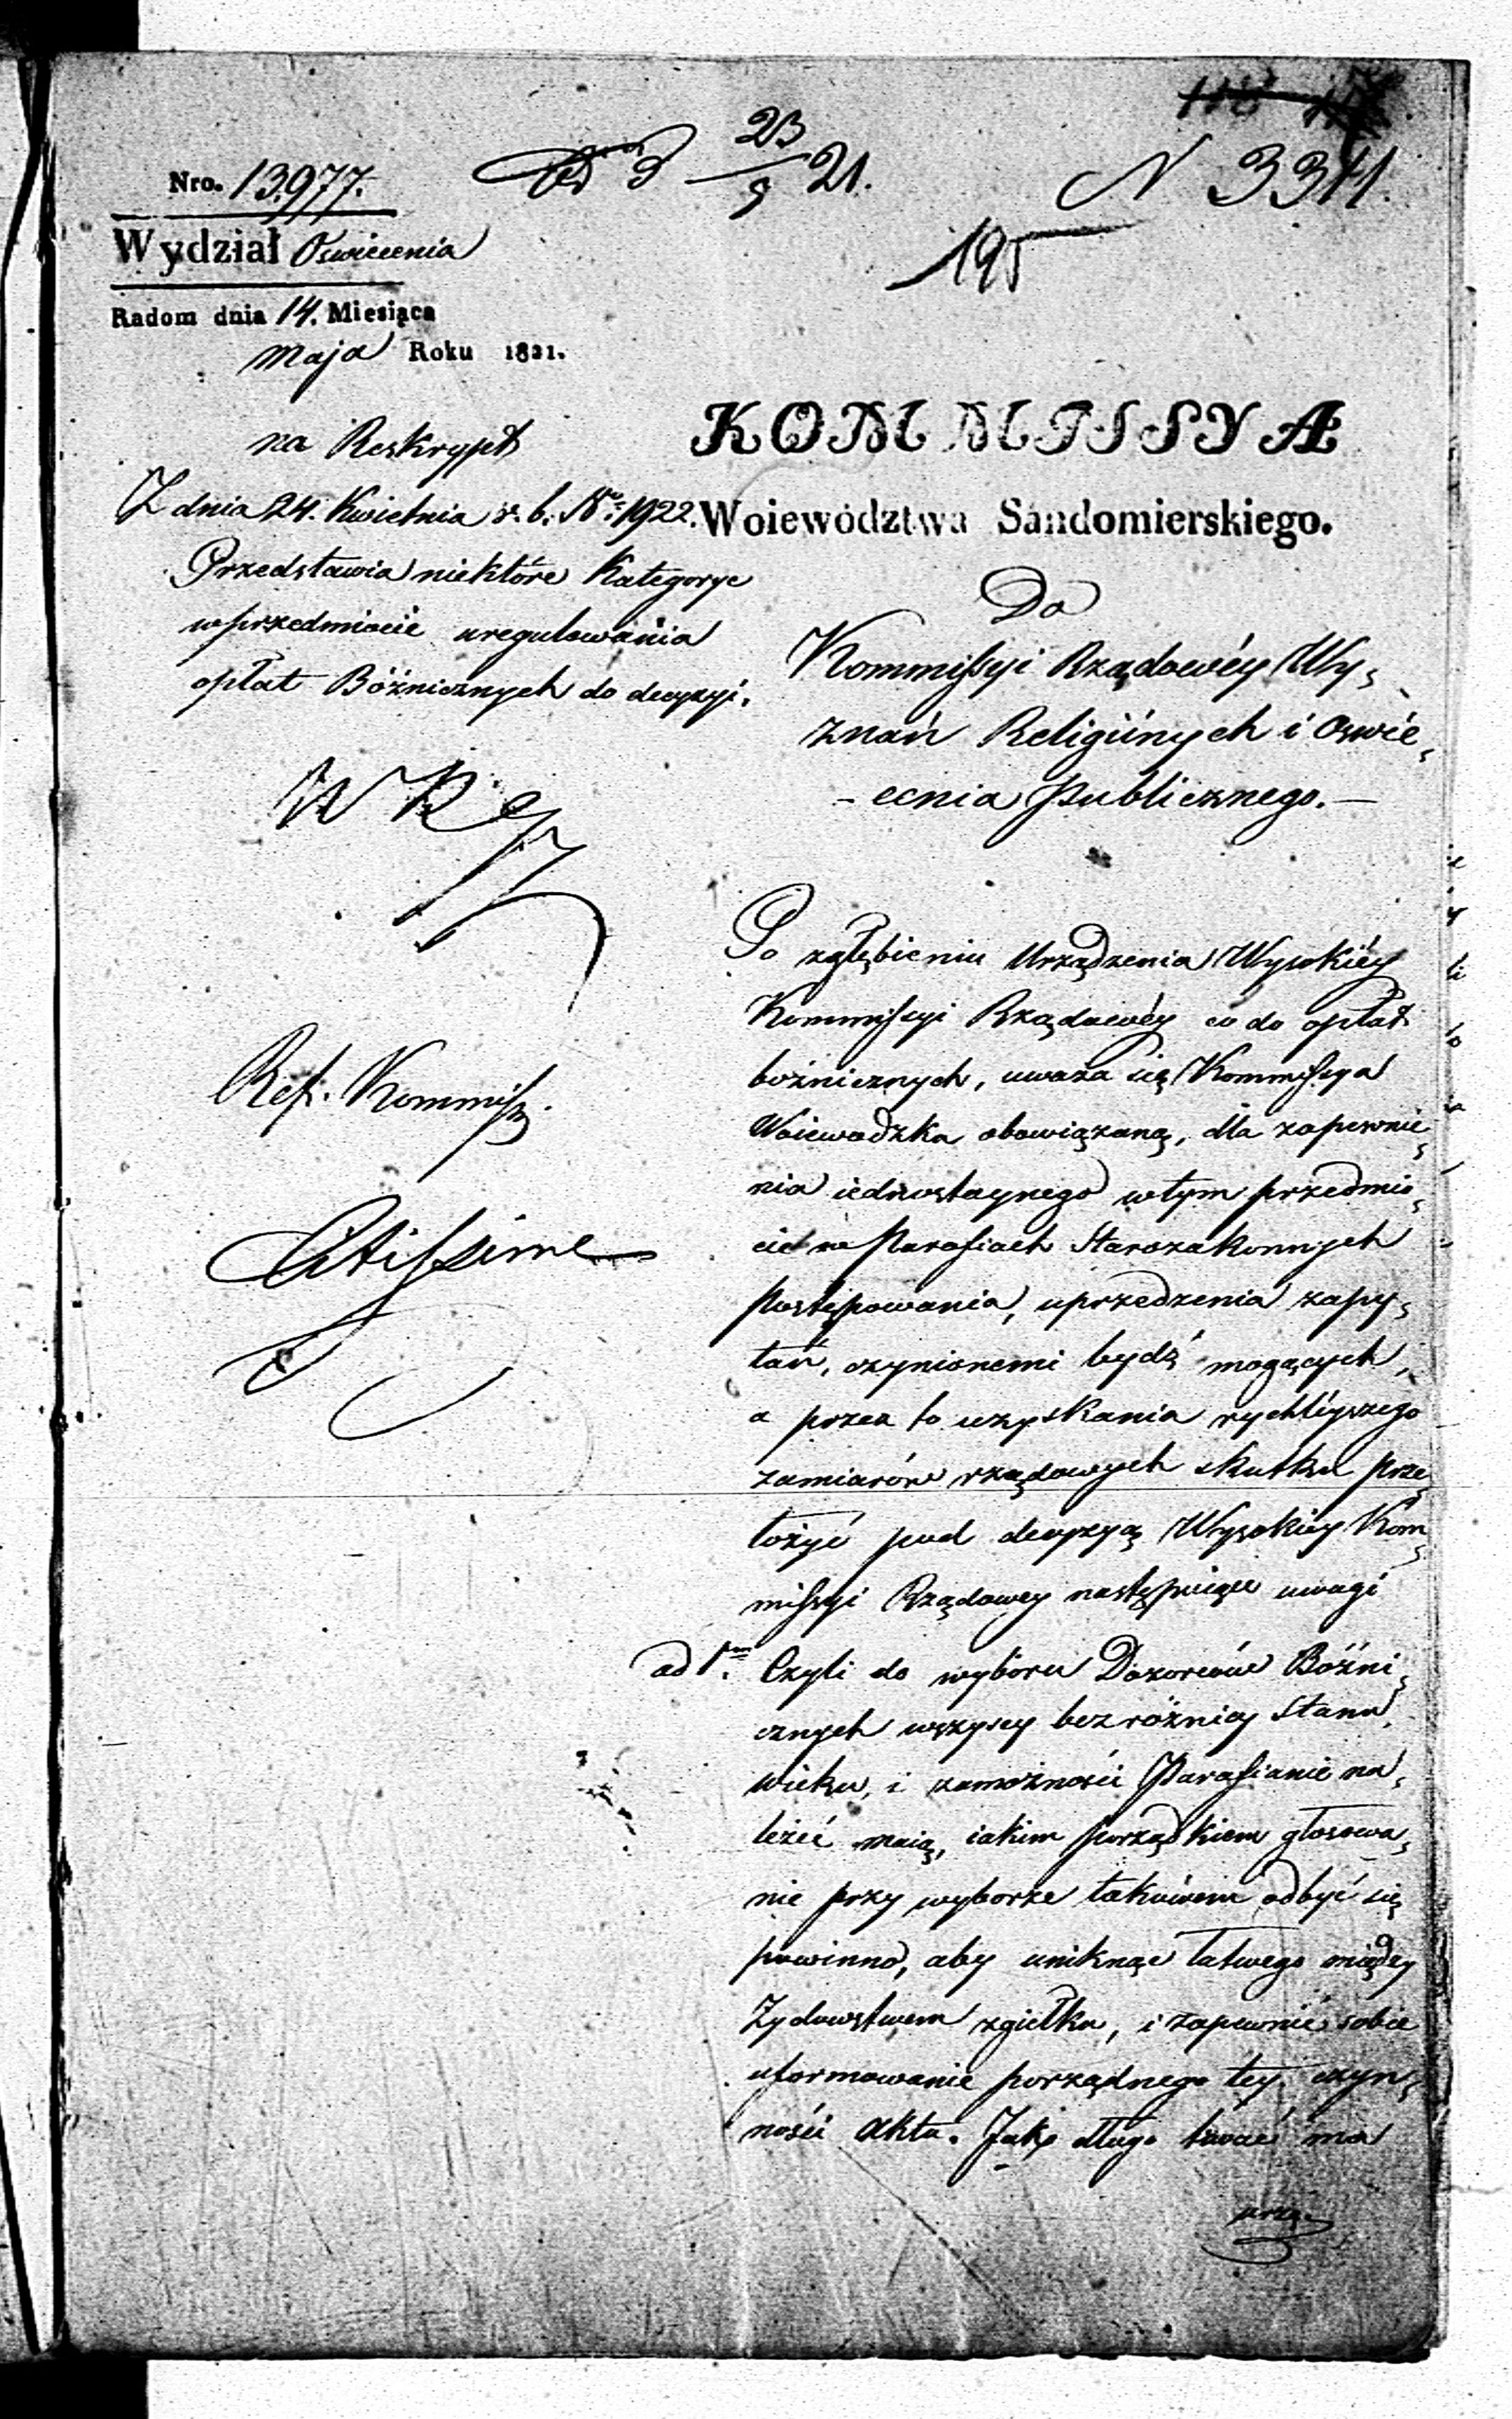 Nro. 13,977.
23/9 21.
N 3311.
195
Wydział Oswiecenia
Radom dnia 14. Miesiąca
Maja Roku 1821.
na Reskrypt
Z dnia 24. Kwietnia r. b. No: 1922.
Przedstawia niektóre Kategorye
w przedmiocie uregulowania
opłat Bóżnicznych do decyzyi.
Ref. Kommiss.
Citissime
KOMMISSYA
Woiewództwa Sandomierskiego.
Do
Kommissyi Rządowéy Wy-
znań Religiinych i Oswie-
-cenia Publicznego.—
Po zgłębieniu Urządzenia Wysokiéy
Kommissyi Rządowéy co do opłat
boźnicznych, uważa się Kommissya
Woiewodzka obowiązaną, dla zapewnie-
nia iednostaynego w tym przedmio-
cie w Parafiach Starozakonnych
postępowania, uprzedzenia zapy-
tań, czynionemi bydź mogących,
a przez to uzyskania rychléyszego
zamiarów rządowych skutku prze-
łożyć pod decyzyą Wysokiey Kom-
missyi Rządowey następuiące uwagi
ad 1m. Czyli do wyboru Dozorców Bóźni-
cznych wszyscy bez różnicy Stanu,
wieku, i zamożności Parafianie na-
leżeć maią, iakim porządkiem głosowa-
nie przy wyborze takowem odbyć się
powinno, aby uniknąć łatwego między
Żydowstwem zgiełku, i zapewnić sobie
uformowanie porządnego tey czyn-
ności Aktu. Jak długo trwać ma
urzą-